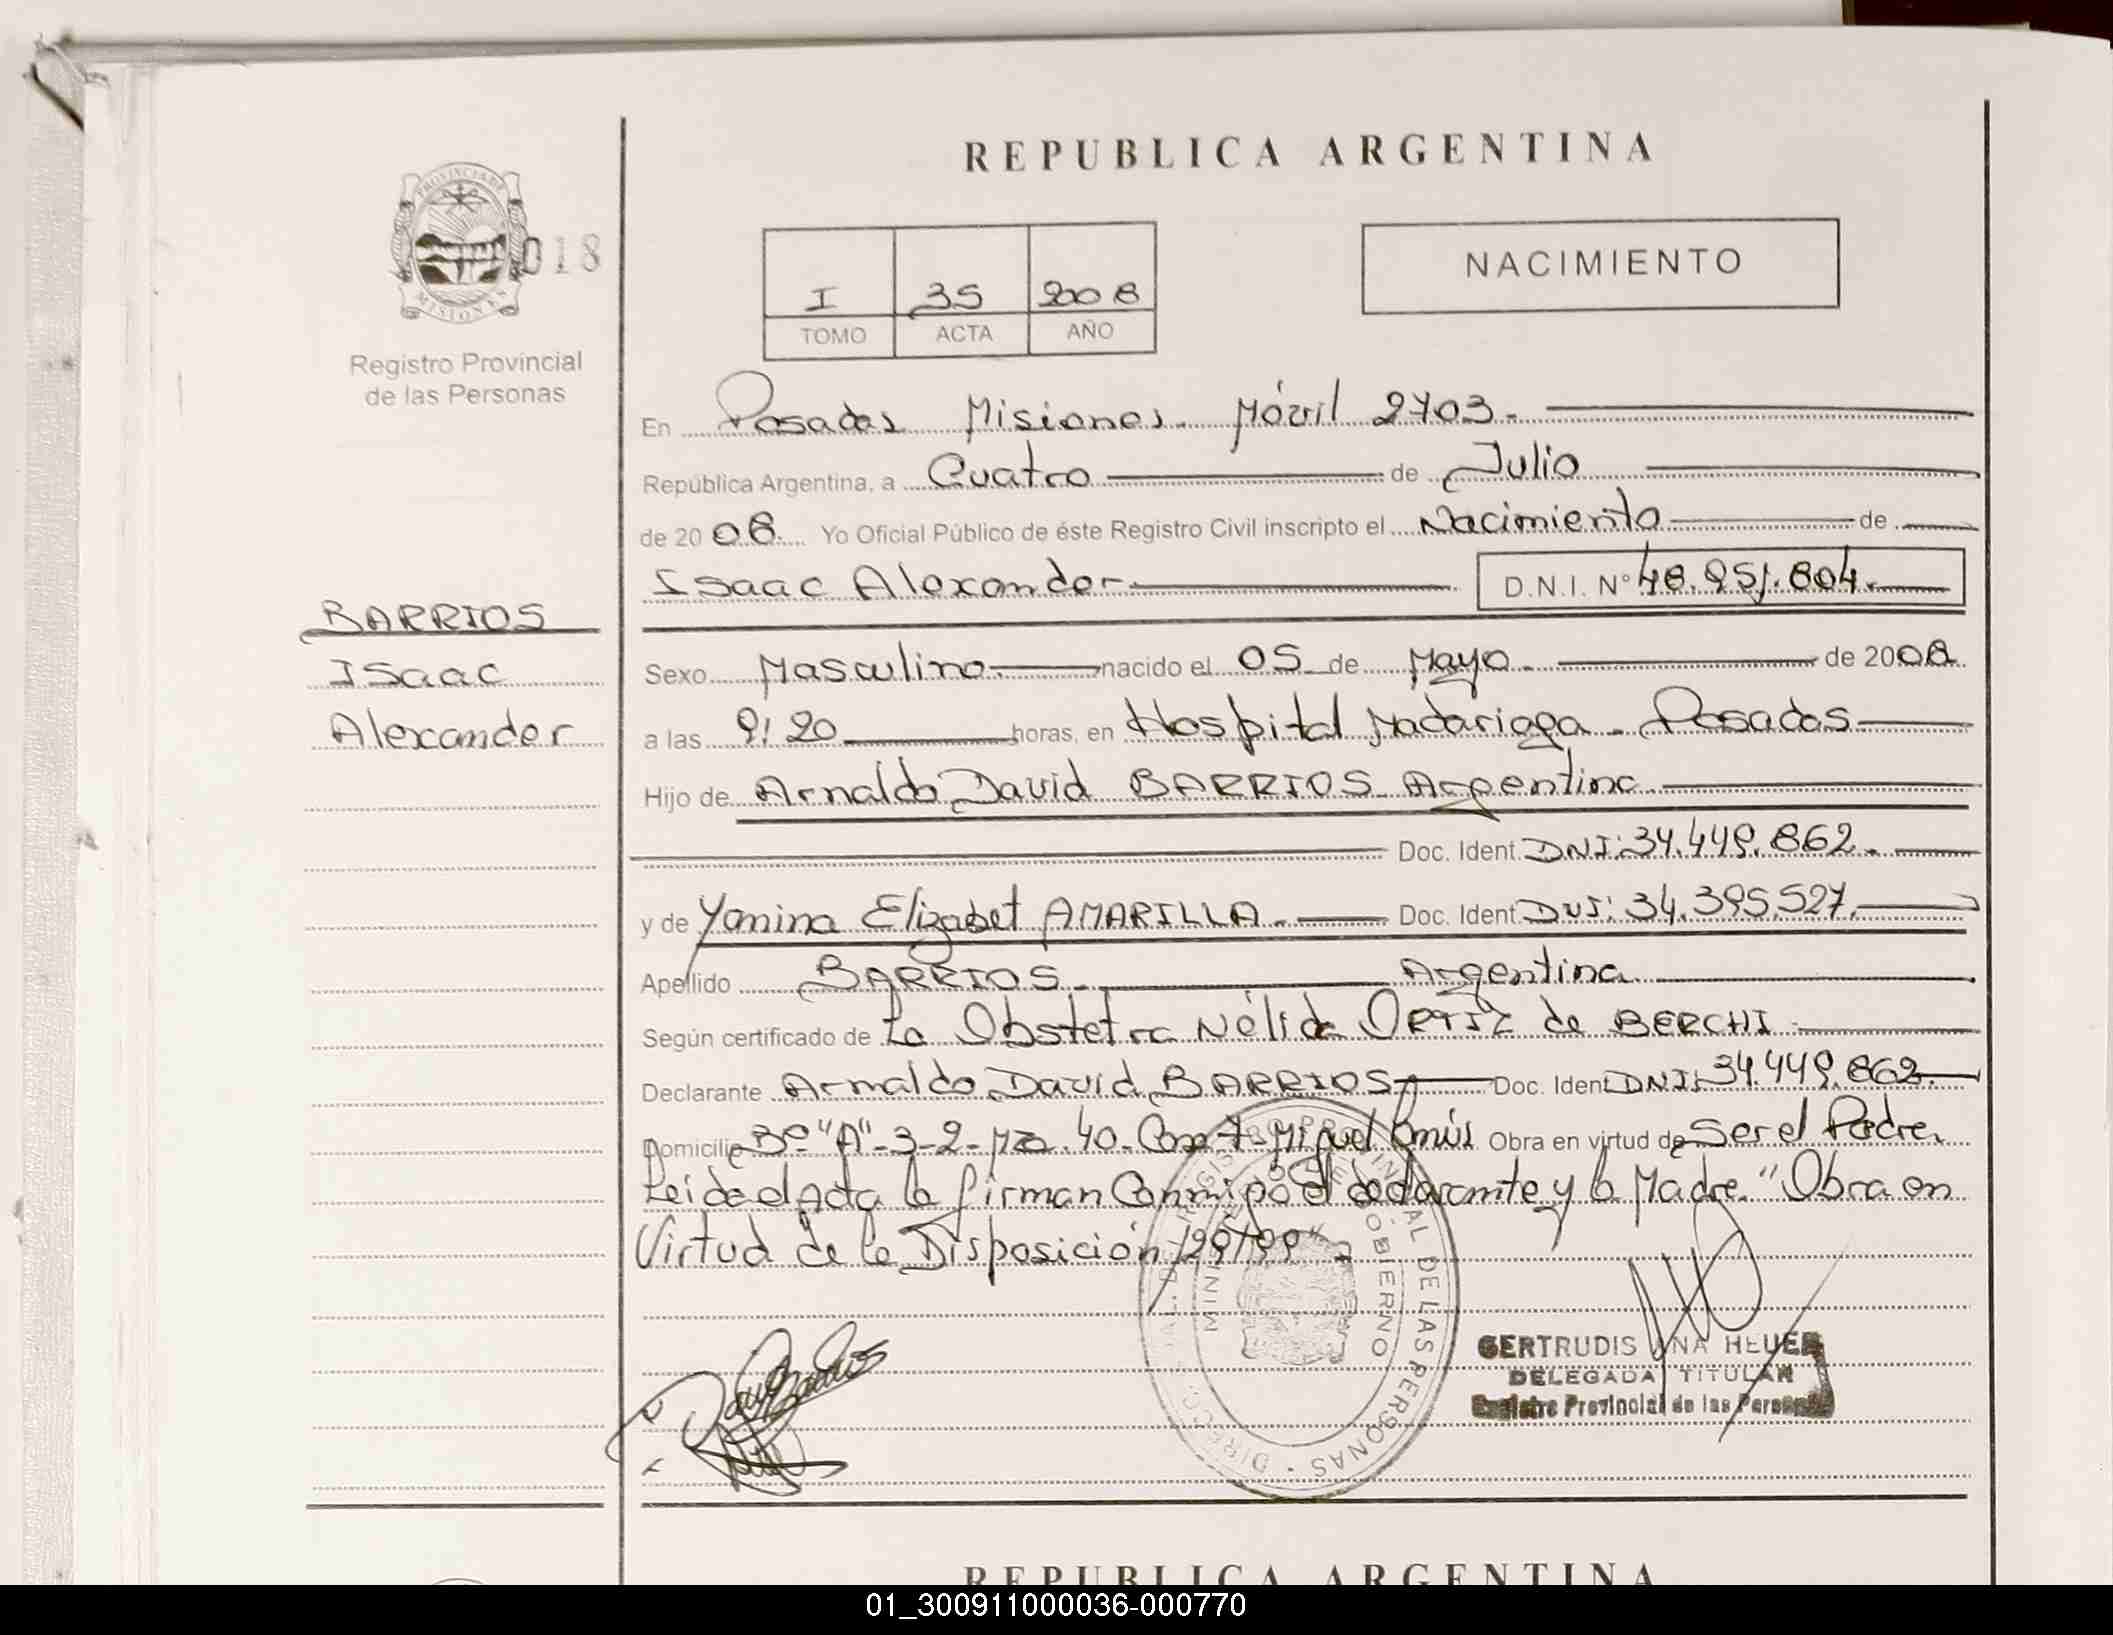 REPUBLICA ARGENTINA
PROVINCIA DE
MISIONES
018
Registro Provincial
de las Personas
I 35 2008
TOMO ACTA AÑO
NACIMIENTO
En Posadas Misiones. Móvil 2703.-
República Argentina, a Cuatro de Julio
de 2008. Yo Oficial Público de éste Registro Civil inscripto el Nacimiento de
Isaac Alexander D.N.I. N° 48.251.804.
BARRIOS
Isaac
Alexander
Sexo Masculino. nacido el 05 de Mayo. de 2008.
a las 9:20 horas, en Hospital Madariaga - Posadas
Hijo de Arnaldo David BARRIOS Argentino
Doc. Ident. DNI: 34.449.862.
y de Yanina Elizabet AMARILLA. Doc. Ident. DNI: 34.395.527.
Apellido BARRIOS. Argentina
Según certificado de La Obstetra Nélida ORTIZ de BERCHI
Declarante Arnaldo David BARRIOS Doc. Ident DNI: 34.449.862.
Domicilio Bº "A"-3-2-Mz.40- Miguel Obra en virtud de Ser el Padre.
Leida el Acta la firman Conmigo el declarante y la Madre. "Obra en
Virtud de la Disposición
GERTRUDIS ANA HEUER
DELEGADA TITULAR
Registro Provincial de las Personas
GOBIERNO
DE LAS PERSONAS
REPUBLICA ARGENTINA
01_300911000036-000770